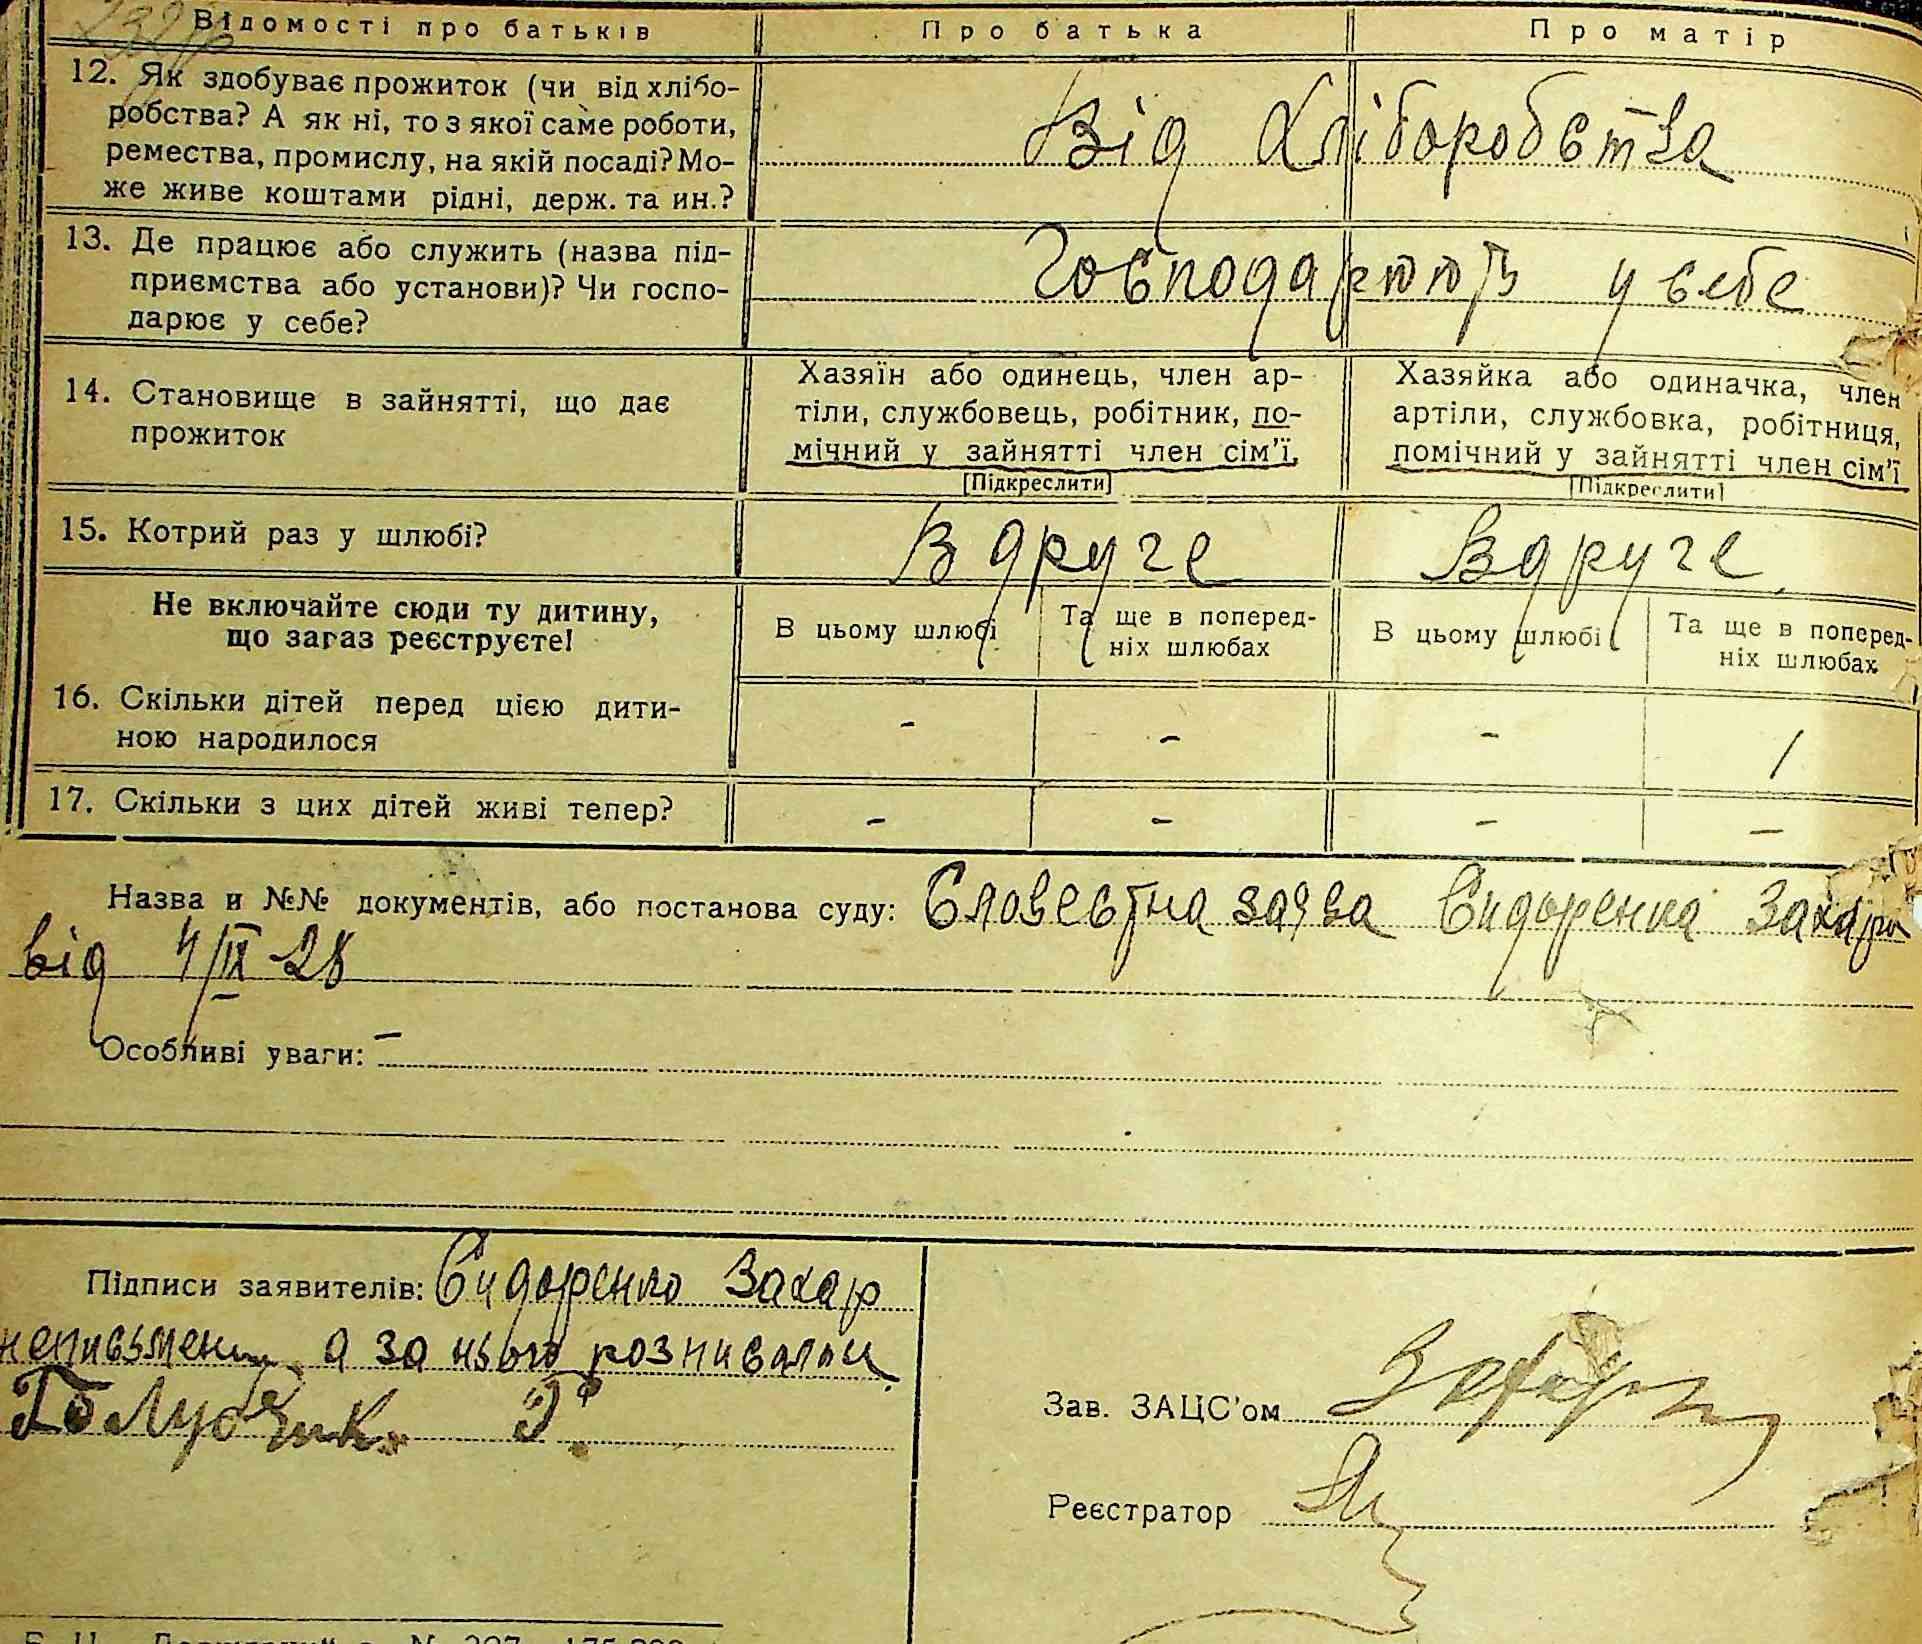 Відомості про батьків Про батька Про матір
12. Як здобуває прожиток (чи від хлібо-
робства? А як ні, то з якої саме роботи,
ремества, промислу, на якій посаді? Мо-
же живе коштами рідні, держ. та ин.?
Від Хліборобства
13. Де працює або служить (назва під-
приємства або установи)? Чи госпо-
дарює у себе?
Господарюють у себе
14. Становище в зайнятті, що дає
прожиток
Хазяїн або одинець, член ар-
тіли, службовець, робітник, по-
мічний у зайнятті член сім'ї.
[Підкреслити]
Хазяйка або одиначка, член
артіли, службовка, робітниця,
помічний у зайнятті член сім'ї
[Підкреслити]
15. Котрий раз у шлюбі? Вдруге Вдруге
Не включайте сюди ту дитину,
що зараз реєструєте!
В цьому шлюбі
Та ще в поперед-
ніх шлюбах
В цьому шлюбі
Та ще в поперед-
ніх шлюбах
16. Скільки дітей перед цією дити-
ною народилося
- - - 1
17. Скільки з цих дітей живі тепер? - - - -
Назва и №№ документів, або постанова суду: Словестна заява Сидоренка Захара
від 4/IX 28
Особливі уваги: -
Підписи заявителів: Сидоренко Захар
неписьмен. а за нього розписався
Голубчик Г.
Зав. ЗАЦС'ом
Реєстратор